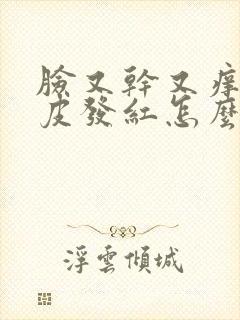 臉又幹又痒
皮發紅怎麼
浮雲傾城